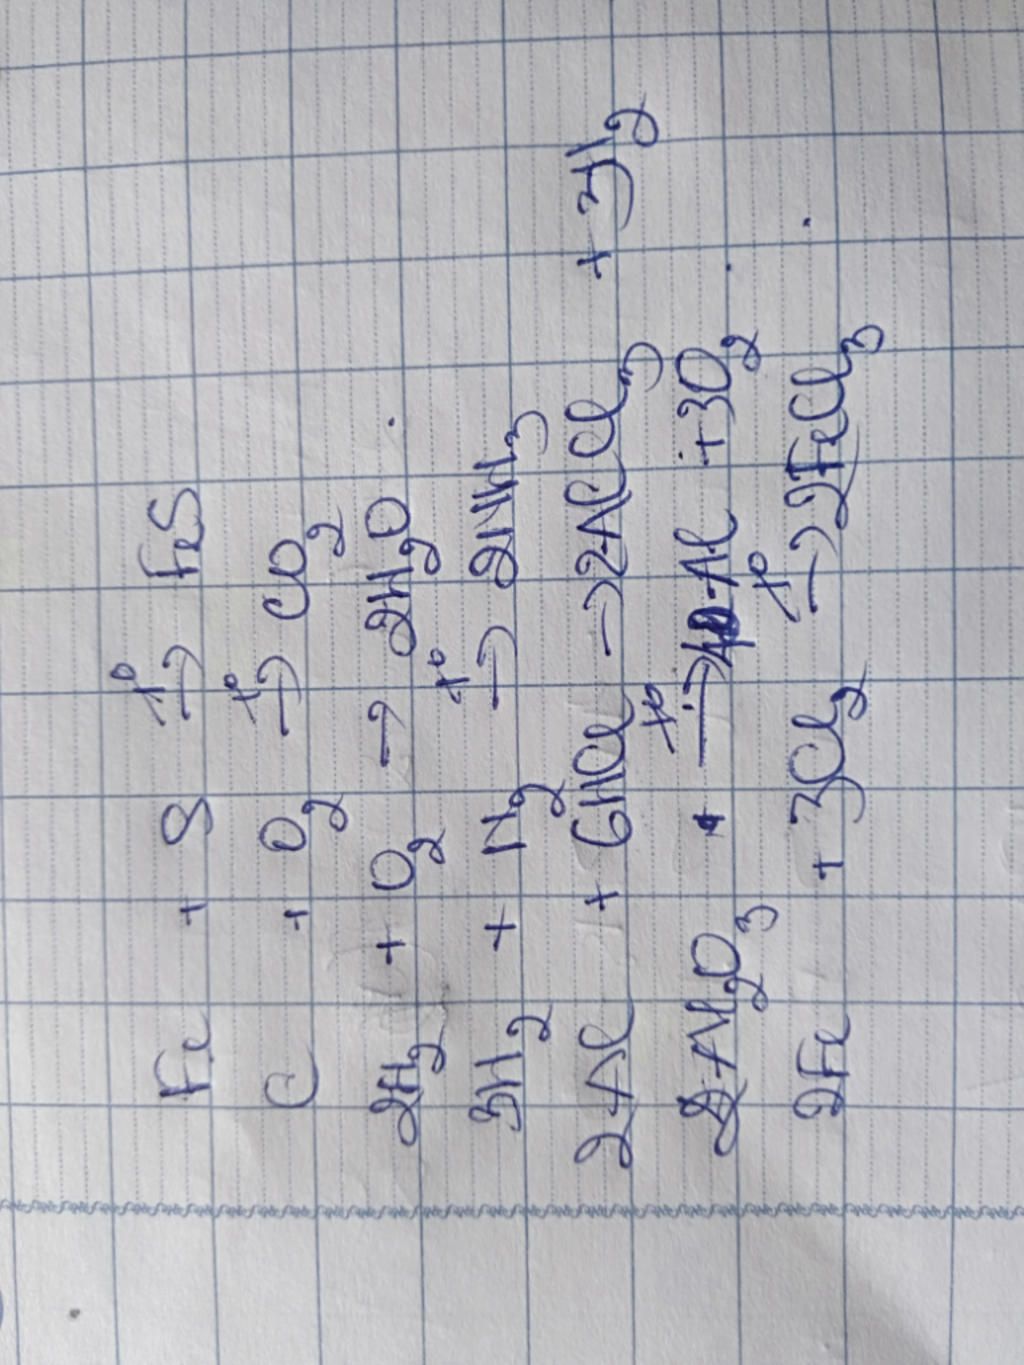 Fe + S →t° FeS
C + O2 →t° CO2
2H2 + O2 → 2H2O
3H2 + N2 →t° 2NH3
2Al + 6HCl → 2AlCl3 + 3H2
2Al2O3 →t° Al + 3O2
2Fe + 3Cl2 →t° 2FeCl3